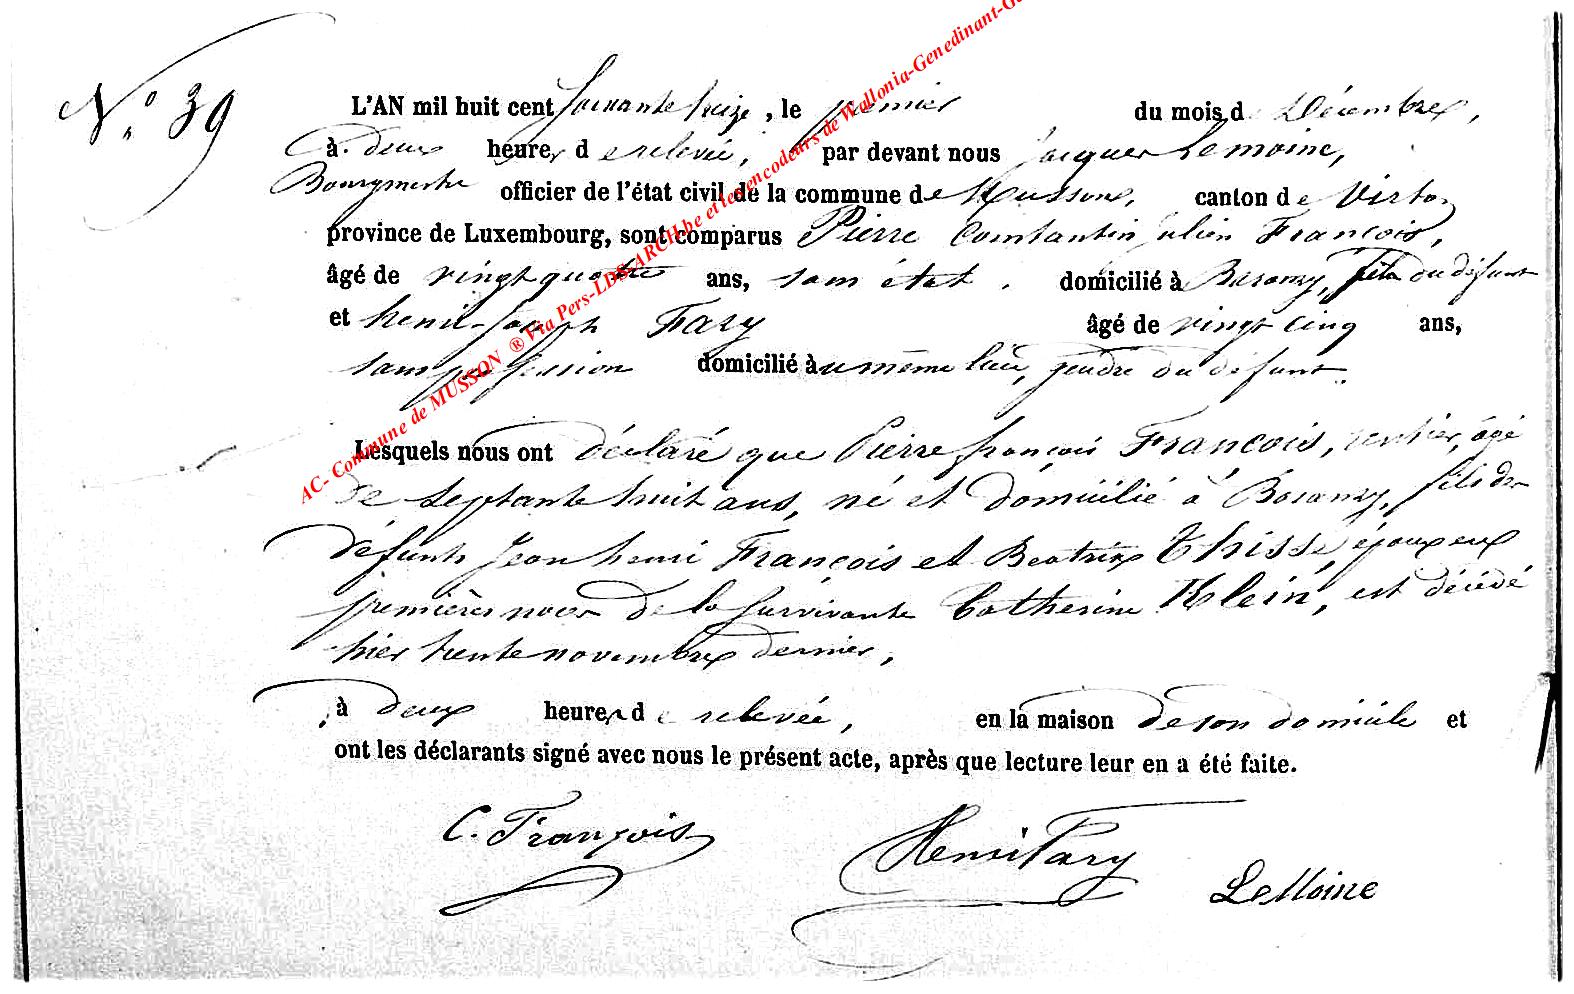 N.° 39
L'AN mil huit cent soixante seize, le premier du mois de Décembre,
à deux heures de relevée, par devant nous Jacques Lemoine,
Bourgmestre officier de l'état civil de la commune de Musson, canton de Virton
province de Luxembourg, sont comparus Pierre Constantin Julien François,
âgé de vingt quatre ans, sans état, domicilié à Baranzy, fils du défunt
et henri-Joseph Fary âgé de vingt cinq ans,
sans profession domicilié au même lieu, gendre du défunt.
Lesquels nous ont déclaré que Pierre françois François, rentier, âgé
de septante huit ans, né et domicilié à Baranzy, fils des
défunts Jean henri François et Beatrix Thisse, époux en
premières noces de la survivante Catherine Klein, est décédé
hier trente novembre dernier,
à deux heures de relevée, en la maison de son domicile et
ont les déclarants signé avec nous le présent acte, après que lecture leur en a été faite.
C. François
Henri Fary
LeMoine
AC- Commune de MUSSON ® Via Pers-LDS-ARCH.be et les encodeurs de Wallonia-Genedinant-G